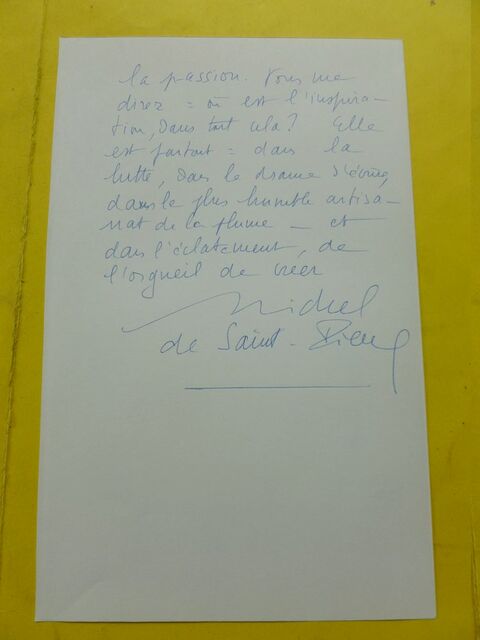 la passion. Vous me
direz = où est l'inspira-
tion, dans tout cela? Elle
est partout = dans la
lutte, dans le drame d'écrire,
dans le plus humble artisa-
nat de la plume — et
dans l'éclatement, de
l'orgueil de créer
Michel
de Saint-Pierre